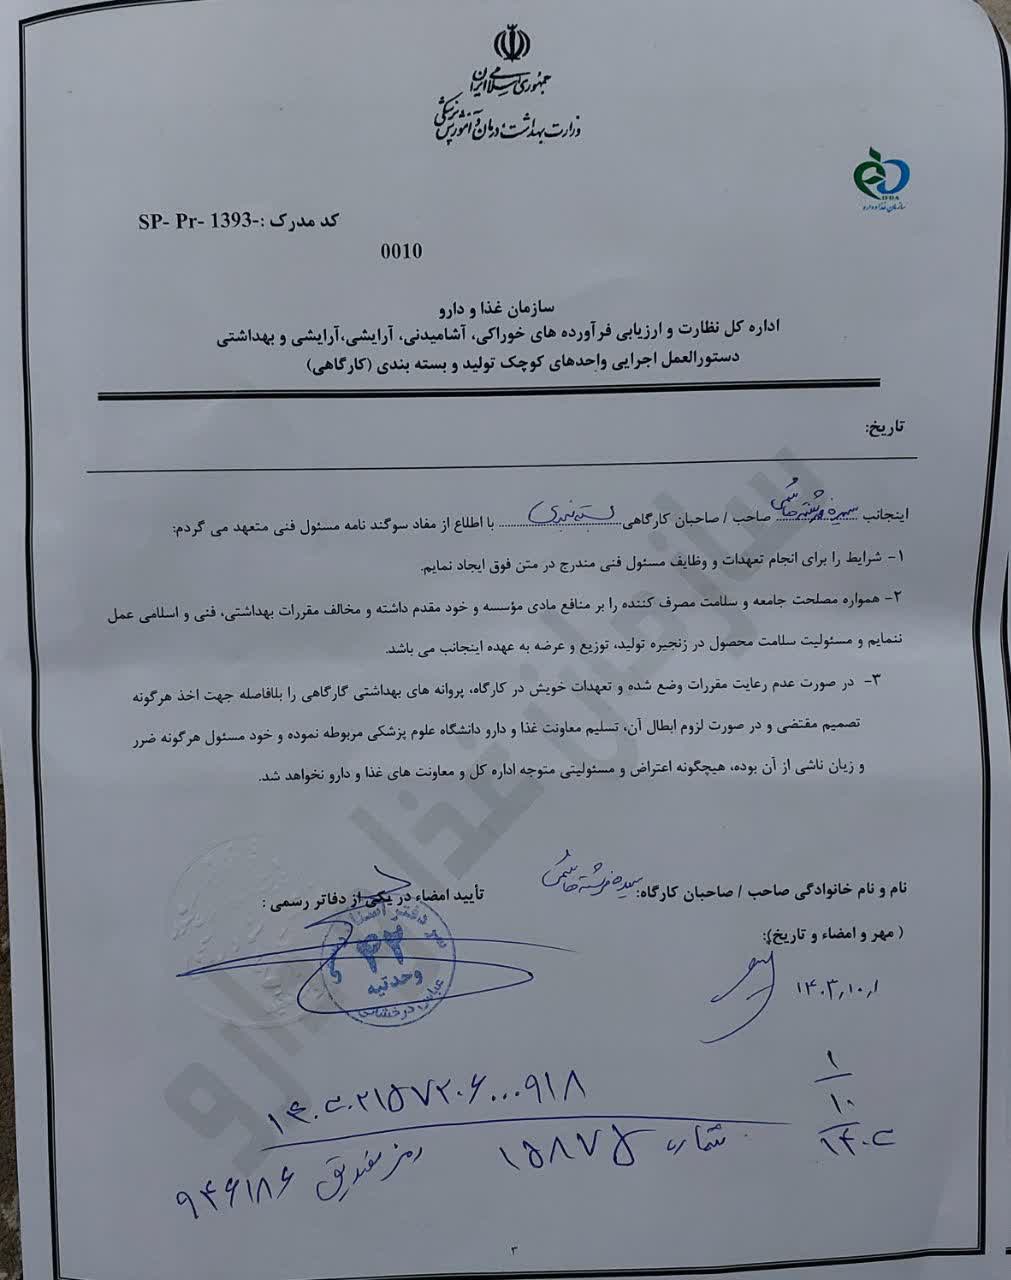 جمهوری اسلامی ایران
وزارت بهداشت، درمان و آموزش پزشکی
IFDA
سازمان غذا و دارو
کد مدرک :-SP- Pr- 1393
0010
سازمان غذا و دارو
اداره کل نظارت و ارزیابی فرآورده های خوراکی، آشامیدنی، آرایشی،آرایشی و بهداشتی
دستورالعمل اجرایی واحدهای کوچک تولید و بسته بندی (کارگاهی)
تاریخ:
اینجانب سیده فرشته هاشمی صاحب / صاحبان کارگاهی بسته بندی با اطلاع از مفاد سوگند نامه مسئول فنی متعهد می گردم:
۱- شرایط را برای انجام تعهدات و وظایف مسئول فنی مندرج در متن فوق ایجاد نمایم.
۲- همواره مصلحت جامعه و سلامت مصرف کننده را بر منافع مادی مؤسسه و خود مقدم داشته و مخالف مقررات بهداشتی، فنی و اسلامی عمل
ننمایم و مسئولیت سلامت محصول در زنجیره تولید، توزیع و عرضه به عهده اینجانب می باشد.
۳- در صورت عدم رعایت مقررات وضع شده و تعهدات خویش در کارگاه، پروانه های بهداشتی گارگاهی را بلافاصله جهت اخذ هرگونه
تصمیم مقتضی و در صورت لزوم ابطال آن، تسلیم معاونت غذا و دارو دانشگاه علوم پزشکی مربوطه نموده و خود مسئول هرگونه ضرر
و زیان ناشی از آن بوده، هیچگونه اعتراض و مسئولیتی متوجه اداره کل و معاونت های غذا و دارو نخواهد شد.
نام و نام خانوادگی صاحب / صاحبان کارگاه: سیده فرشته هاشمی
تأیید امضاء در یکی از دفاتر رسمی :
( مهر و امضاء و تاریخ):
۱۴۰۳٫۱۰٫۱
سر دفتر اسناد رسمی
۴۲
وحدتیه
عباس درخشانی
۱
۱۰
۱۴۰۳
۱۴۰۳۰۲۱۵۷۲۰۶۰۰۰۹۱۸
شماره ۱۵۸۷۵
رمز تصدیق ۹۴۶۱۸۶
۳
سازمان غذا و دارو